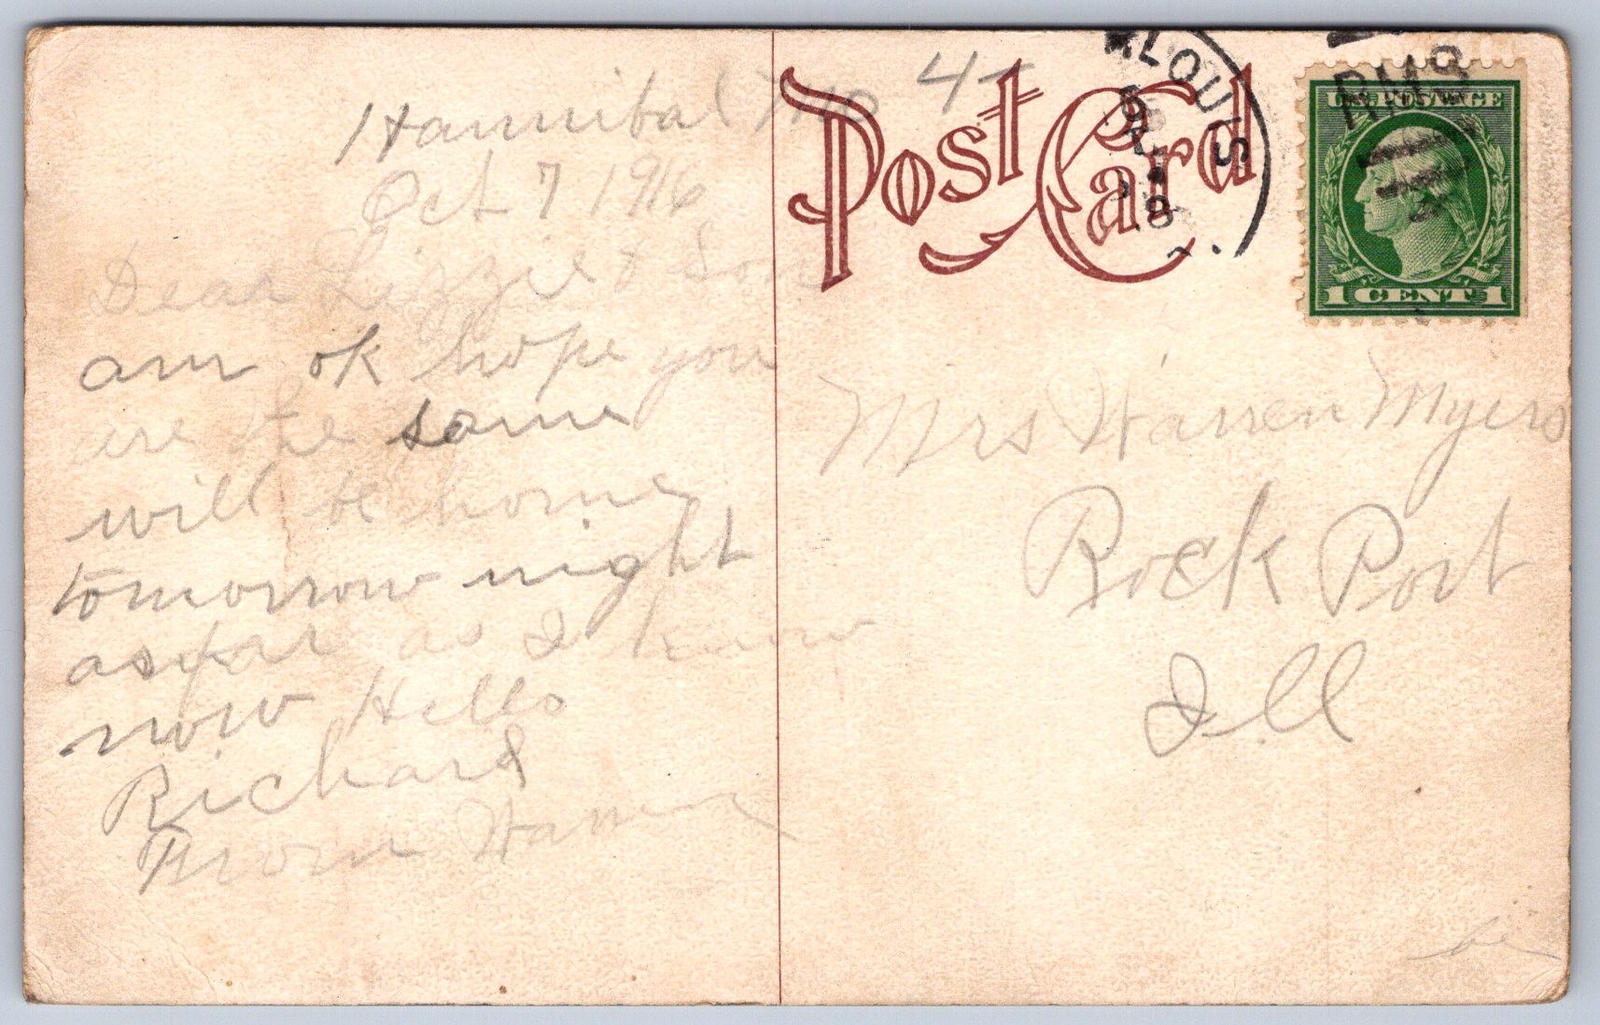 Hannibal Mo
Oct 7 1916
Dear Lizzie & Son
am ok hope you
are the same
will be home
tomorrow night
as far as I know
now Hello
Richard
From
4-
Post Card
LOUIS
RMS
U.S. POSTAGE
1 CENT 1
Mrs Warren Myers
Rock Port
Ill